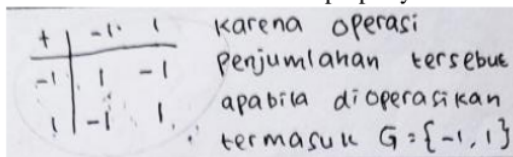 + | -1 1
-1 | 1 -1
1 | -1 1
karena operasi
penjumlahan tersebut
apabila dioperasikan
termasuk G = {-1, 1}